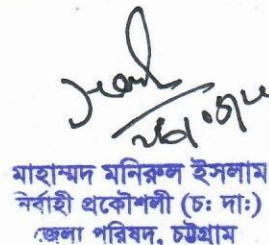 মাহাম্মদ মনিরুল ইসলাম
নির্বাহী প্রকৌশলী (চঃ দাঃ)
জেলা পরিষদ, চট্টগ্রাম